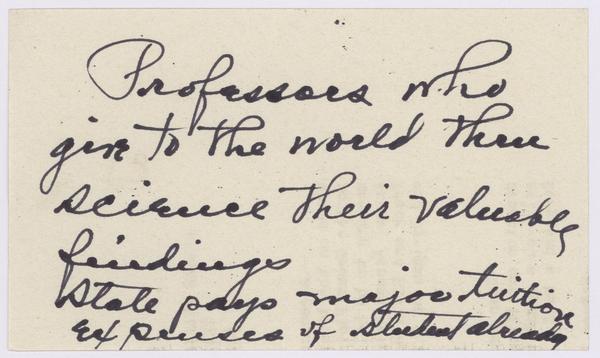 Professors who
give to the world thru
science their valuable
findings
State pays major tuition
expenses of student already